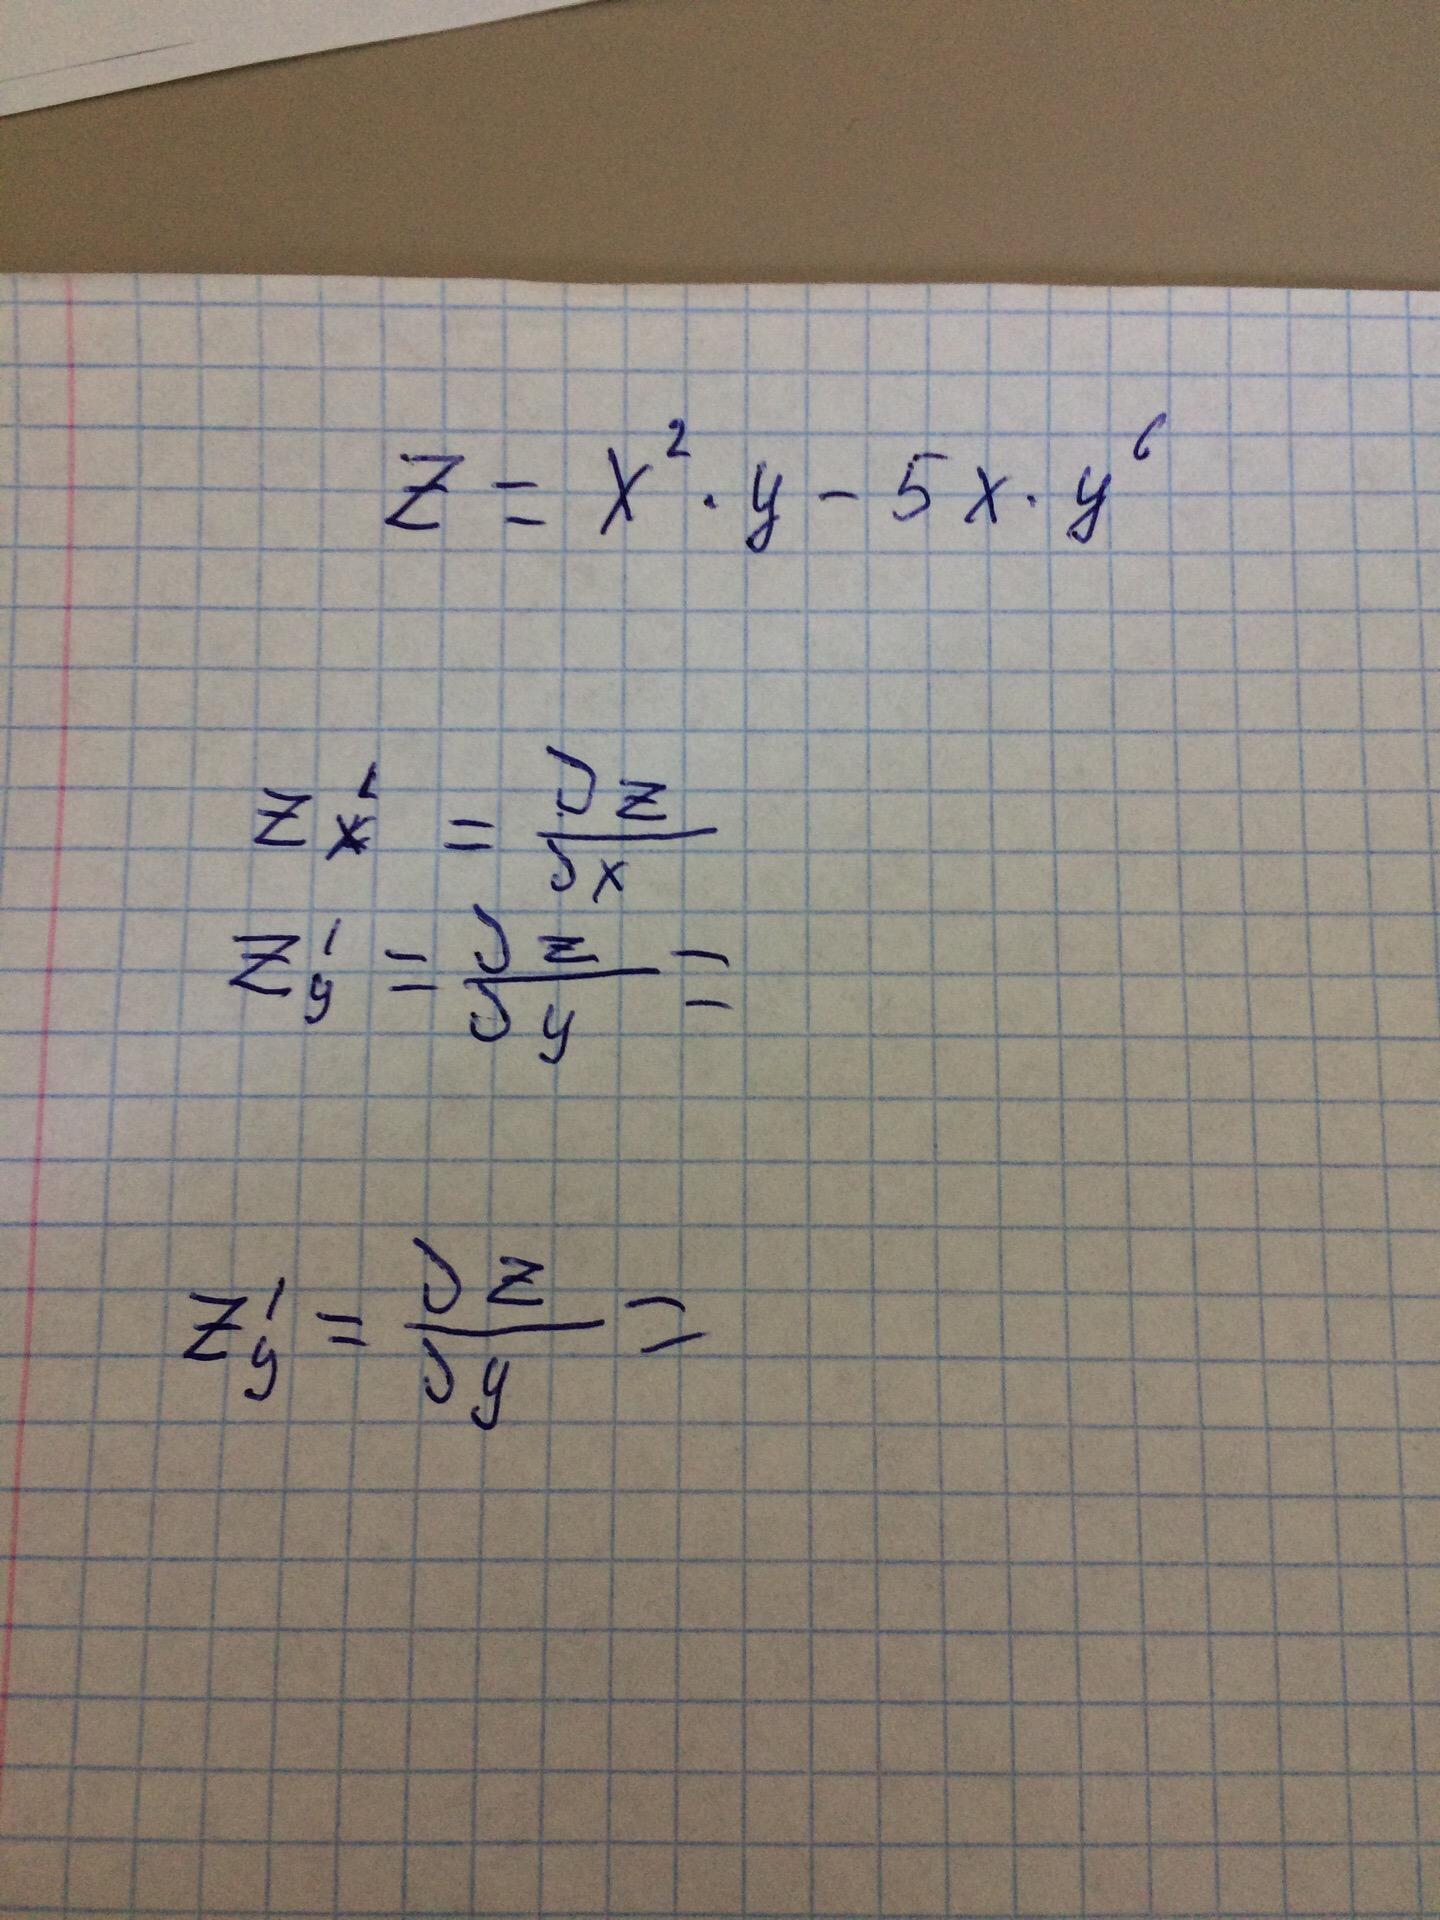 z = x² · y - 5x · y⁶
z'ₓ = ∂z/∂x
z'ᵧ = ∂z/∂y =
z'ᵧ = ∂z/∂y =